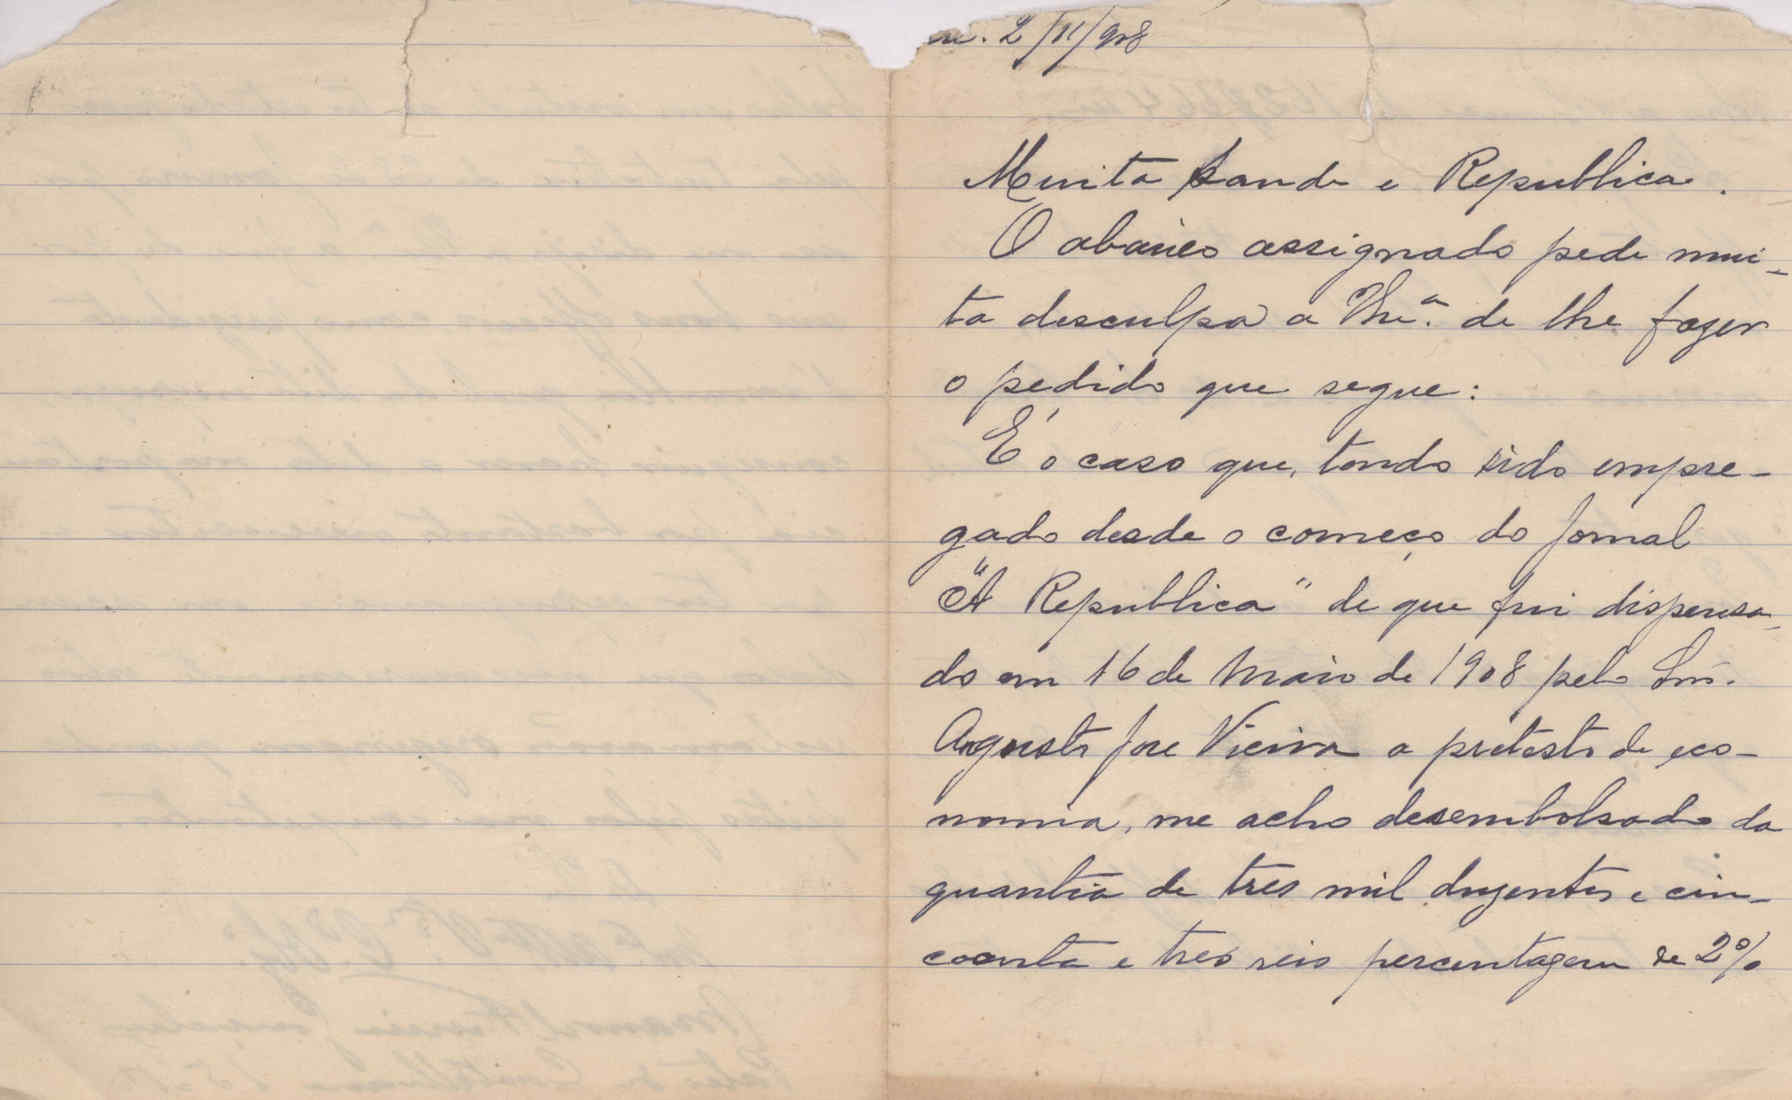 2/11/908
Muita Saude e Republica.
O abaixo assignado pede mui-
ta desculpa a Vhe.ª de lhe fazer
o pedido que segue:
É o caso que, tendo sido empre-
gado desde o começo do Jornal
"A Republica" de que fui dispensa-
do em 16 de Maio de 1908 pelo Snr.
Augusto Jose Vieira a pretesto de eco-
nomia, me acho desembolsado da
quantia de tres mil duzentos e cin-
coenta e tres reis percentagem de 2%